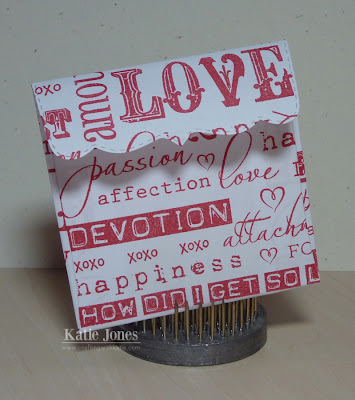 XOXO
amou
LOVE
passion
love
affection
DEVOTION
XOXO XOXO XOXO
happiness
HOW DID I GET SO L
Katie Jones